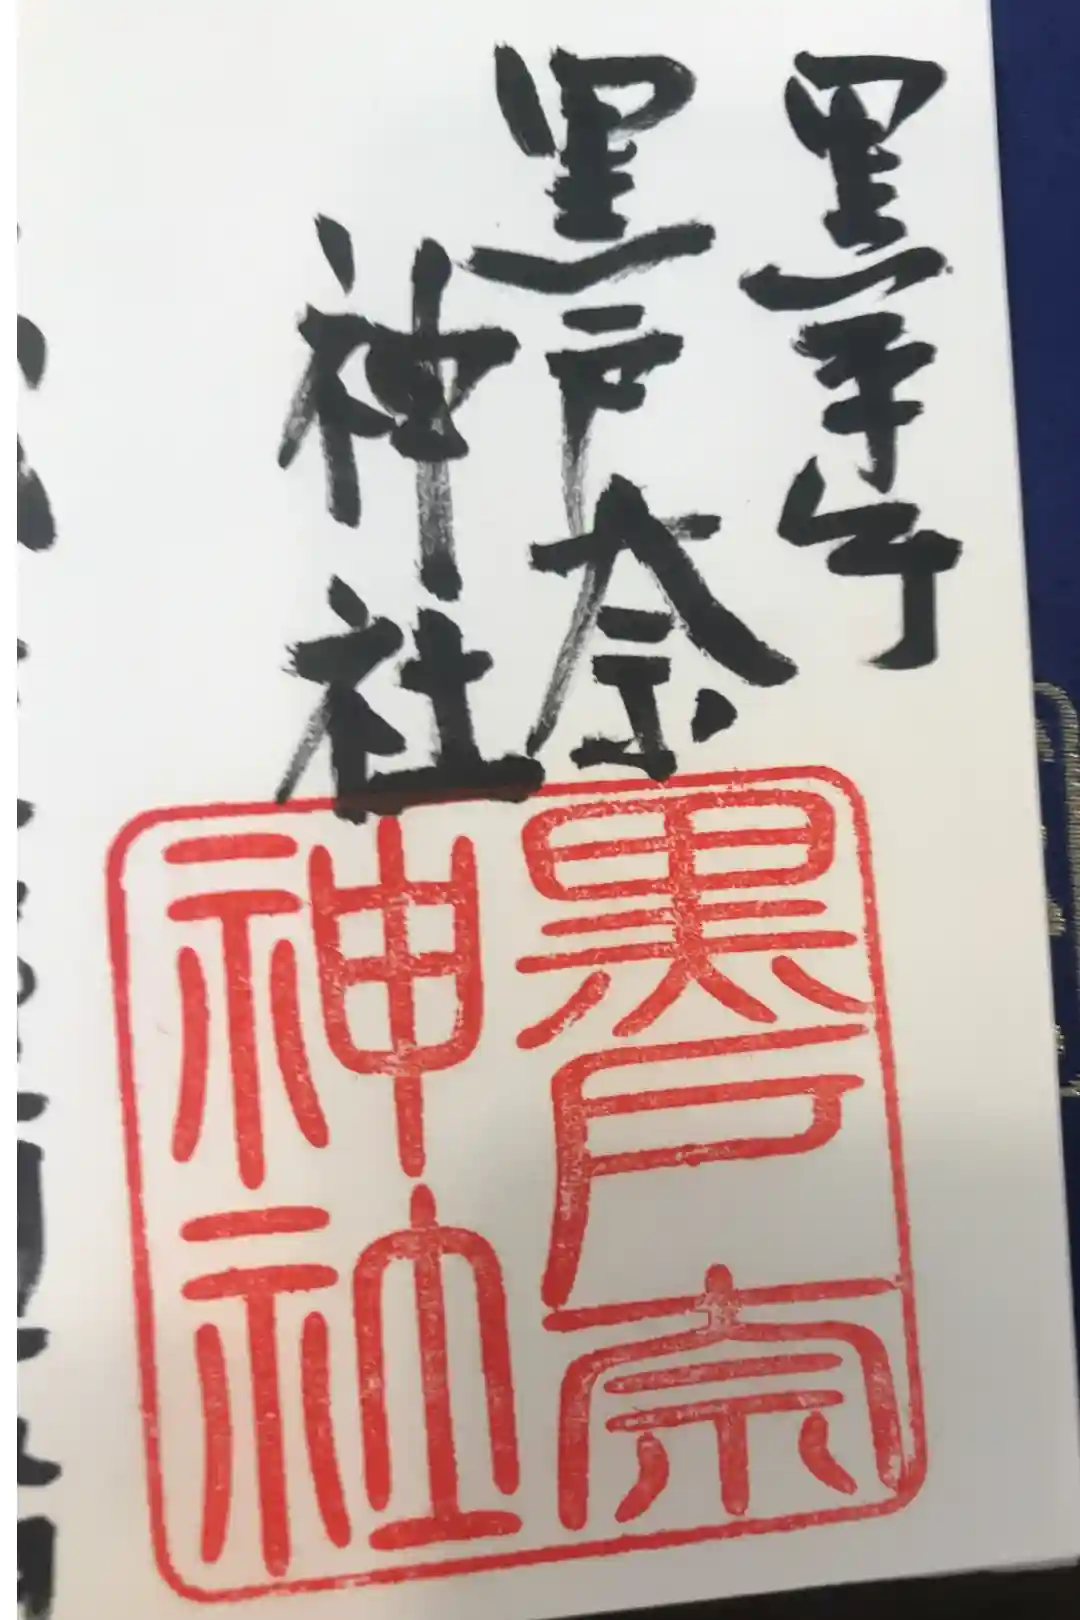 黒平町
黒戸奈
神社
黒戸奈
神社